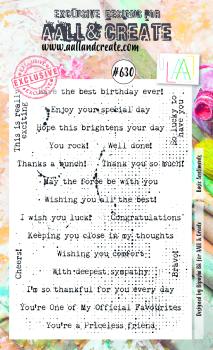 EXCLUSIVE DESIGNS FOR
AALL & CREATE
www.aallandcreate.com
#630
EXCLUSIVE
Have the best birthday ever!
Enjoy your special day
Hope this brightens your day
You rock!
Well done!
Thanks a bunch!
Thank you so much!
May the force be with you
Wishing you all the best!
I wish you luck!
Congratulations
Keeping you close in my thoughts
Wishing you comfort
With deepest sympathy
I'm so thankful for you every day
You're One of My Official Favourites
You're a Priceless friend
This is really exciting
So lucky to have you
Cheers!
Bravo!
Designed by Bipasha BK for AALL & Create